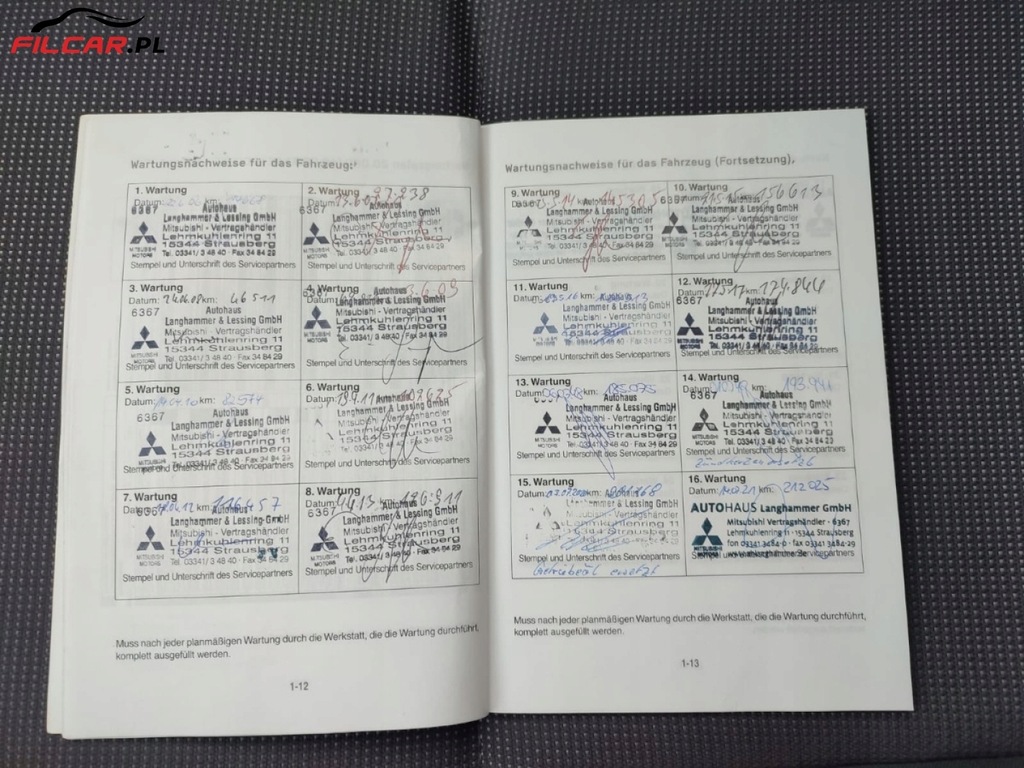 FILCAR.PL
Wartungsnachweise für das Fahrzeug:
1. Wartung
Datum: km:
6367 Autohaus
Langhammer & Lessing GmbH
Mitsubishi - Vertragshändler
Lehmkuhlenring 11
15344 Strausberg
Tel. 03341/3 48 40 · Fax 34 84 29
MITSUBISHI
MOTORS
Stempel und Unterschrift des Servicepartners
2. Wartung
6367 Autohaus
Langhammer & Lessing GmbH
Mitsubishi - Vertragshändler
Lehmkuhlenring 11
15344 Strausberg
Tel. 03341/3 48 40 · Fax 34 84 29
MITSUBISHI
MOTORS
Stempel und Unterschrift des Servicepartners
3. Wartung
Datum: 24.06.08 km: 46511
6367 Autohaus
Langhammer & Lessing GmbH
Mitsubishi - Vertragshändler
Lehmkuhlenring 11
15344 Strausberg
Tel. 03341/3 48 40 · Fax 34 84 29
MITSUBISHI
MOTORS
Stempel und Unterschrift des Servicepartners
4. Wartung
6367 Autohaus
Langhammer & Lessing GmbH
Mitsubishi - Vertragshändler
Lehmkuhlenring 11
15344 Strausberg
Tel. 03341/3 48 40 · Fax 34 84 29
Stempel und Unterschrift des Servicepartners
5. Wartung
Datum: km:
6367 Autohaus
Langhammer & Lessing GmbH
Mitsubishi - Vertragshändler
Lehmkuhlenring 11
15344 Strausberg
Tel. 03341/3 48 40 · Fax 34 84 29
MITSUBISHI
MOTORS
Stempel und Unterschrift des Servicepartners
6. Wartung
Autohaus
Langhammer & Lessing GmbH
Mitsubishi - Vertragshändler
Lehmkuhlenring 11
15344 Strausberg
Tel. 03341/3 48 40 · Fax 34 84 29
Stempel und Unterschrift des Servicepartners
7. Wartung
6367
Langhammer & Lessing GmbH
Mitsubishi - Vertragshändler
Lehmkuhlenring 11
15344 Strausberg
Tel. 03341/3 48 40 · Fax 34 84 29
MITSUBISHI
MOTORS
Stempel und Unterschrift des Servicepartners
8. Wartung
6367 Autohaus
Langhammer & Lessing GmbH
Mitsubishi - Vertragshändler
Lehmkuhlenring 11
15344 Strausberg
Tel. 03341/3 48 40 · Fax 34 84 29
MITSUBISHI
MOTORS
Stempel und Unterschrift des Servicepartners
Muss nach jeder planmäßigen Wartung durch die Werkstatt, die die Wartung durchführt,
komplett ausgefüllt werden.
1-12
Wartungsnachweise für das Fahrzeug (Fortsetzung),
9. Wartung
Autohaus
Langhammer & Lessing GmbH
Mitsubishi - Vertragshändler
Lehmkuhlenring 11
15344 Strausberg
Tel. 03341/3 48 40 · Fax 34 84 29
Stempel und Unterschrift des Servicepartners
10. Wartung
156613
6367 Autohaus
Langhammer & Lessing GmbH
Mitsubishi - Vertragshändler
Lehmkuhlenring 11
15344 Strausberg
Tel. 03341/3 48 40 · Fax 34 84 29
MITSUBISHI
MOTORS
Stempel und Unterschrift des Servicepartners
11. Wartung
Datum:
Autohaus
Langhammer & Lessing GmbH
Mitsubishi - Vertragshändler
Lehmkuhlenring 11
15344 Strausberg
Tel. 03341/3 48 40 · Fax 34 84 29
MITSUBISHI
MOTORS
Stempel und Unterschrift des Servicepartners
12. Wartung
174.844
6367 Autohaus
Langhammer & Lessing GmbH
Mitsubishi - Vertragshändler
Lehmkuhlenring 11
15344 Strausberg
Tel. 03341/3 48 40 · Fax 34 84 29
MITSUBISHI
MOTORS
Stempel und Unterschrift des Servicepartners
13. Wartung
Datum: km: 185.075
6367 Autohaus
Langhammer & Lessing GmbH
Mitsubishi - Vertragshändler
Lehmkuhlenring 11
15344 Strausberg
Tel. 03341/3 48 40 · Fax 34 84 29
MITSUBISHI
MOTORS
Stempel und Unterschrift des Servicepartners
14. Wartung
Datum: km:
6367 Autohaus
Langhammer & Lessing GmbH
Mitsubishi - Vertragshändler
Lehmkuhlenring 11
15344 Strausberg
Tel. 03341/3 48 40 · Fax 34 84 29
MITSUBISHI
MOTORS
Stempel und Unterschrift des Servicepartners
15. Wartung
Datum:
Autohaus
Langhammer & Lessing GmbH
Mitsubishi - Vertragshändler
Lehmkuhlenring 11
15344 Strausberg
Tel. 03341/3 48 40 · Fax 34 84 29
Stempel und Unterschrift des Servicepartners
Getriebeöl ersetzt
16. Wartung
Datum: km: 212025
AUTOHAUS Langhammer GmbH
Mitsubishi Vertragshändler · 6367
Lehmkuhlenring 11 · 15344 Strausberg
fon 03341 3484-0 · fax 03341 348429
MITSUBISHI
MOTORS
Muss nach jeder planmäßigen Wartung durch die Werkstatt, die die Wartung durchführt,
komplett ausgefüllt werden.
1-13